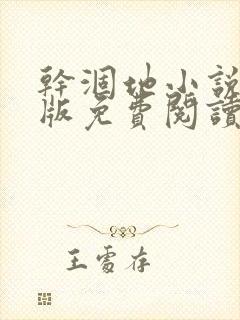 幹涸地小説
版免費閱讀
王雪存